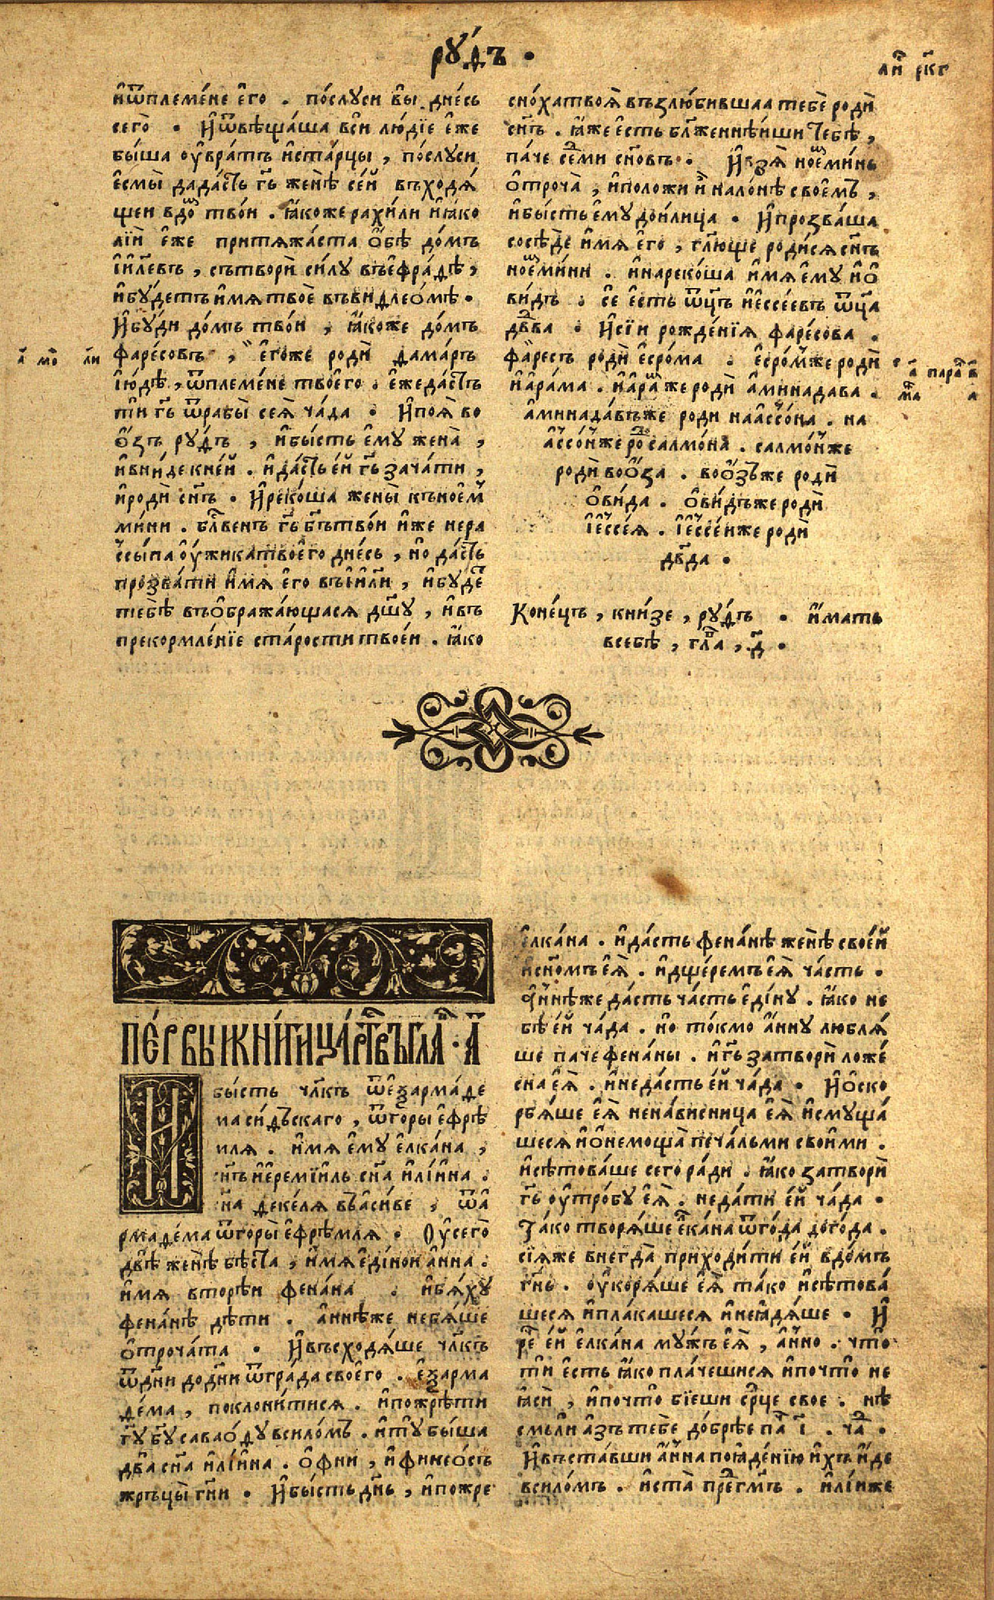 рꙋ́дъ .
ли́ рк҃г
иѿплеме́не є҆го̀ . по́слꙋси вы̀ дне́сь
сего̀ . И҆ ѿвѣща́ша всѝ лю́дїе є҆́же
бы́ша ᲂу҆вра́тъ и҆ста́рцы , по́слꙋси
є҆смы̀ дада́стъ гь҃ женѣ̀ се́й въходѧ́
щеи вдо́ твои̑ . ꙗ҆́коже рахи́ли и҆ ꙗ҆́ко
лі́и є҆́же притѧжа́ста ѻ҆́бѣ до́мъ
і҆и҃левъ , сътворѝ си́лꙋ въефра́дѣ ,
и҆бꙋ́детъ и҆́мѧ твоѐ въвидлео́мѣ .
И҆бꙋ́ди до́мъ тво́и , ꙗ҆́коже до́мъ
фаре́совъ , є҆го́же родѝ дама́ръ
і҆ю́дѣ , ѿплеме́не твоего̀ . є҆же да́стъ
ти гь҃ ѿрабы̀ сеѧ̀ ча́да . И҆поѧ̀ во
о҆́зъ рꙋ́дъ , и҆бы́сть є҆мꙋ̀ жена̀ ,
и҆вни́де кне́й . и҆да́стъ е́й гь҃ зача́ти ,
и҆родѝ сн҃ъ . И҆реко́ша жены̀ къное҆м
ми́ни . блгⷭ҇венъ гь҃ бг҃ътво́и и҆́же нера
ссы́па ᲂу҆́жика твоего̀ дне́сь , и҆о да́стъ
прозва́ти и҆́мѧ є҆го̀ въі҆и҃ли , и҆бꙋ́де
тебѣ̀ въѻ҆бража́ющасѧ дш҃ꙋ , и҆въ
прекормле́нїе ста́рости твое́и . ꙗ҆́ко
а҃ мѳ ли
сно́ха твоѧ̀ възлюби́вшаа тебѐ родѝ
сн҃ъ . ꙗ҆́же є҆́сть бл҃женнѣ́иши тебѣ̀ ,
па́че се́дми сн҃овъ . И҆взѧ̀ ноеми́нь
ѻ҆троча̀ , и҆положѝ и҆̀ нало́нѣ свое́мъ ,
и҆бы́сть є҆мꙋ̀ дои́лица . И҆прозва́ша
сосѣ́де и҆́мѧ є҆го̀ , гл҃юще роди́сѧ сн҃ъ
ноеми́ни . и҆нареко́ша и҆́мѧ є҆мꙋ̀ и҆ѻ҆
ви́дъ . сѐ є҆́сть ѿц҃ъ и҆ессе́евъ ѿц҃а
дв҃да . И҆сі́и рожде́нїѧ фаре́сова .
фаре́съ родѝ є҆сро́ма . є҆сро́мже родѝ
и҆а҆ра́ма . и҆а҆ра́мже родѝ а҆минада́ва .
а҆минада́вже родѝ наассо́на . на
а҆ссо́нже родѝ салмо́на . салмо́нже
родѝ воо҆́за . воо҆́зъже родѝ
ѻ҆ви́да . ѻ҆ви́дъже родѝ
і҆ессе́ѧ . і҆ессе́иже родѝ
дв҃да .
Коне́цъ , кни́зе , рꙋ́дъ . и҆́мать
всебѣ̀ , гл҃а , д҃ .
пе́рвыѧ кни́ги ца́рⷭ҇твъ гла а҃
И҆
бы́сть чл҃къ ѿе҆ꙁарма́де
ма си́дъскаго , ѿгоры̀ є҆фрѣ
иля . и҆́мѧ є҆мꙋ̀ є҆лка́на ,
сн҃ъ и҆еремі́иль сн҃а и҆лі́ина .
сн҃а декелѧ въаси́ве , ѿа
рмаде́ма ѿгоры̀ є҆фре́млѧ . Оу҆сего̀
двѣ̀ женѣ̀ бѣ́ста , и҆́мѧ є҆ди́нои а҆нна .
и҆́мѧ вторѣ́и фена́на . и҆бѧ́хꙋ
фена́нѣ дѣ́ти . а҆ннѣже небѧ́ше
ѻ҆троча́та . И҆въсходѧ́ше чл҃къ
ѿдни̑ додни̑ ѿгра́да своего̀ . є҆ꙁарма
де́ма , поклони́тисѧ . и҆пожрѣ́ти
гꙋ҃ бг҃ꙋ савао́дꙋ всило́мъ . и҆тꙋ̀ бы́ша
два̀ сн҃а и҆лі́ина . ѻ҆фни , и҆финео́съ
жръцы̀ гн҃и . И҆бы́сть дн҃ь , и҆пожре
є҆лка́на . и҆да́сть фена́нѣ женѣ̀ свое́й
и҆сно́мъ еѧ̀ . и҆дще́ремъ еѧ̀ ча́сть .
а҆́ннѣже да́сть ча́сть є҆ди́нꙋ . ꙗ҆́ко не
бѣ̀ е́й ча́да . и҆о то́кмо а҆́ннꙋ люблѧ́
ше па́че фена́ны . и҆гь҃ затворѝ ложе́
сна еѧ̀ . и҆неда́сть е́й ча́да . И҆ѡско
рбѧ́ше еѧ̀ нена́висница еѧ̀ и҆смꙋща́
шесѧ и҆ѻ҆немоща̀ печа́льми свои́ми .
и҆сѣ́това́ше сего̀ ра́ди . ꙗ҆́ко затворѝ
гь҃ ᲂу҆тро́бꙋ еѧ̀ . неда́ти е́й ча́да .
Та́ко творѧ́ше є҆лка́на ѿго́да дого́да .
сїѧ́же внегда̀ приходи́ти е́й вдо́мъ
гн҃ь . ᲂу҆корѧ́ше еѧ̀ та́ко и҆сѣ́това́
шесѧ и҆пла́кашесѧ и҆неꙗ҆дѧ́ше . И҆
ре́ч е́й є҆лка́на мꙋ́жъ еѧ̀ , а҆́нно . что̀
ти є҆́сть ꙗ҆́ко пла́чешисѧ и҆почто̀ не
ꙗ҆сѝ , и҆почто̀ бїе́ши ср҃це своѐ . нѣ
смь́ли а҆́зъ тебѐ до́брѣе па́ч і҃ . ча́д .
И҆въста́вши а҆́нна поꙗ҆де́нїю и҆́хъ и҆́де
всило́мъ . и҆ста̀ пред гмъ . и҆лі́иже